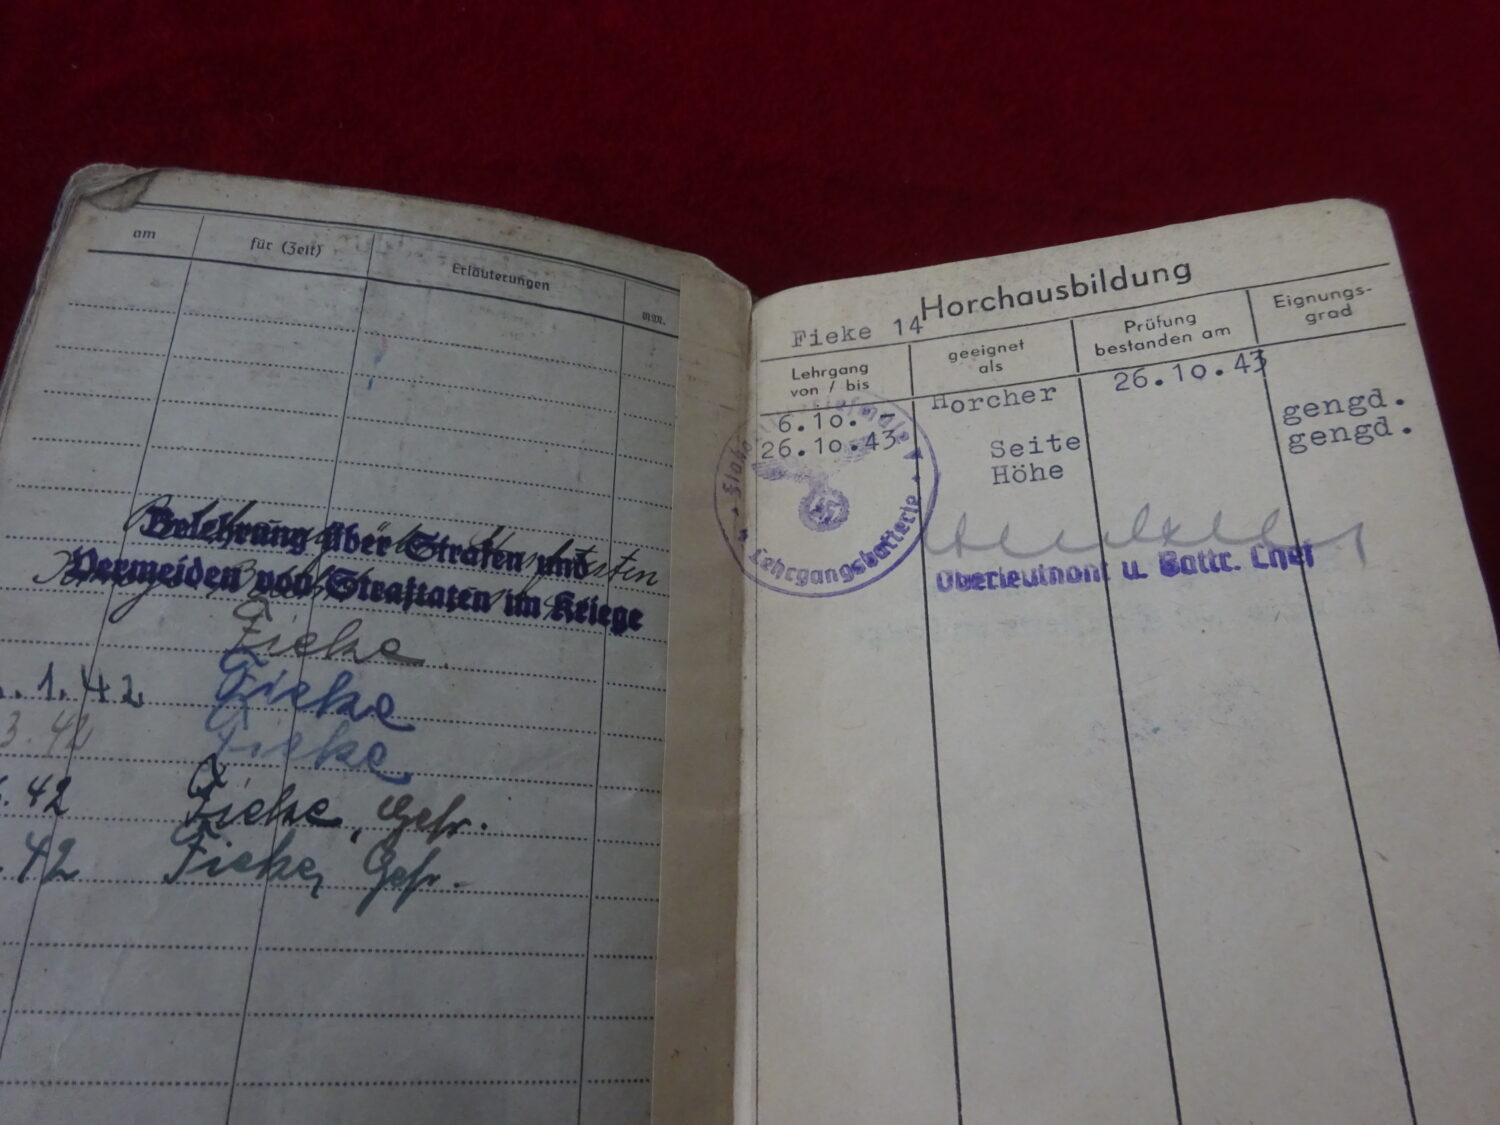 am für (Zeit) Erläuterungen
Belehrung über Strafen und
Vermeiden von Straftaten im Kriege
Fieke
1.42 Fieke
3.42 Fieke
.42 Fieke, Gefr.
.42 Fieke, Gefr.
Horchausbildung
Fieke 14
Lehrgang
von / bis
geeignet
als
Prüfung
bestanden am
Eignungs-
grad
6.10.-
26.10.43
Horcher
Seite
Höhe
26.10.43
gengd.
gengd.
Lehrgangsbatterie
Oberleutnant u. Battr. Chef